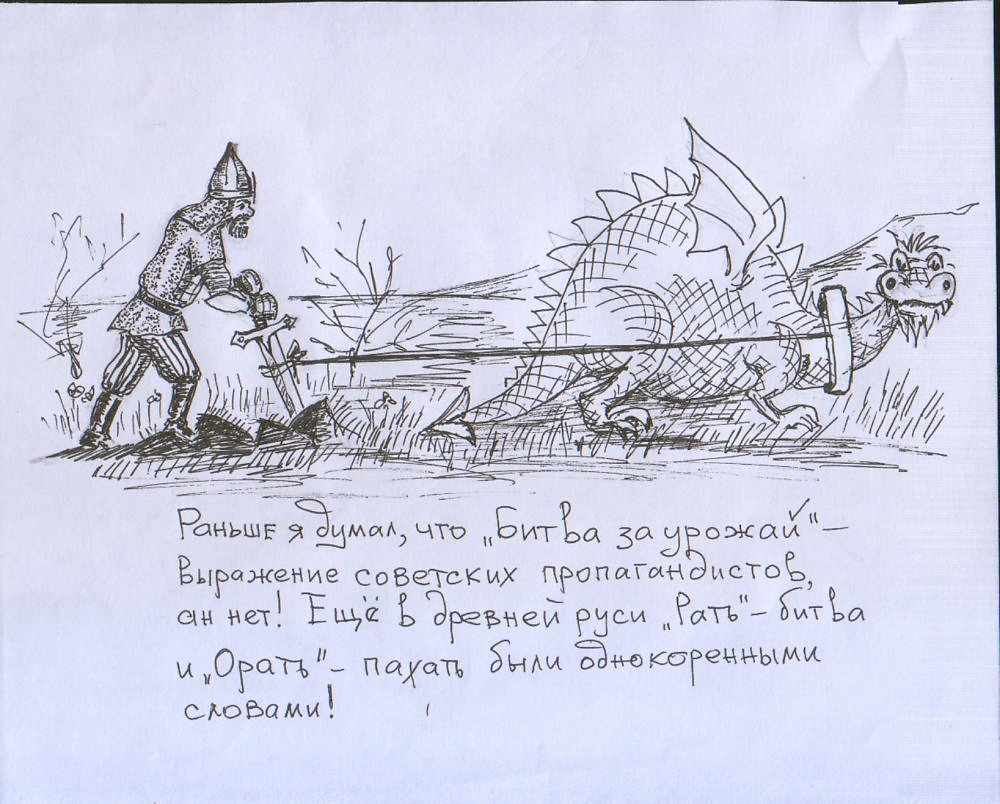 Раньше я думал, что „Битва за урожай“ –
выражение советских пропагандистов,
ан нет! Ещё в древней руси „Рать“ – битва
и „Орать“ – пахать были однокоренными
словами!